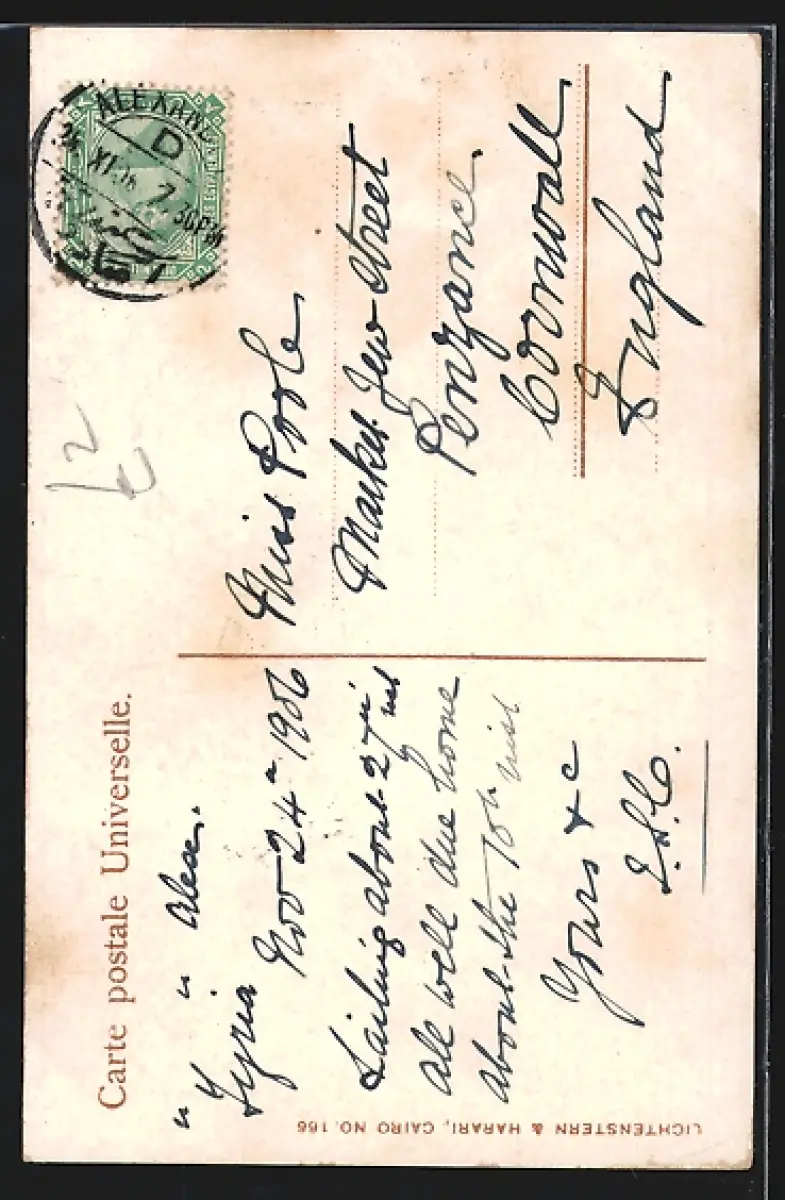 Carte postale Universelle.
" " Alex.
Syria Nov 24th 1906
Sailing about 27th inst
all well due home
about the 10th inst
Yours &c
E.S.C.
Miss Poole
Market Jew Street
Penzance.
Cornwall
England
ALEXAND
D
24 XI 06 7.30PM
LICHTENSTERN & HARARI, CAIRO NO. 166